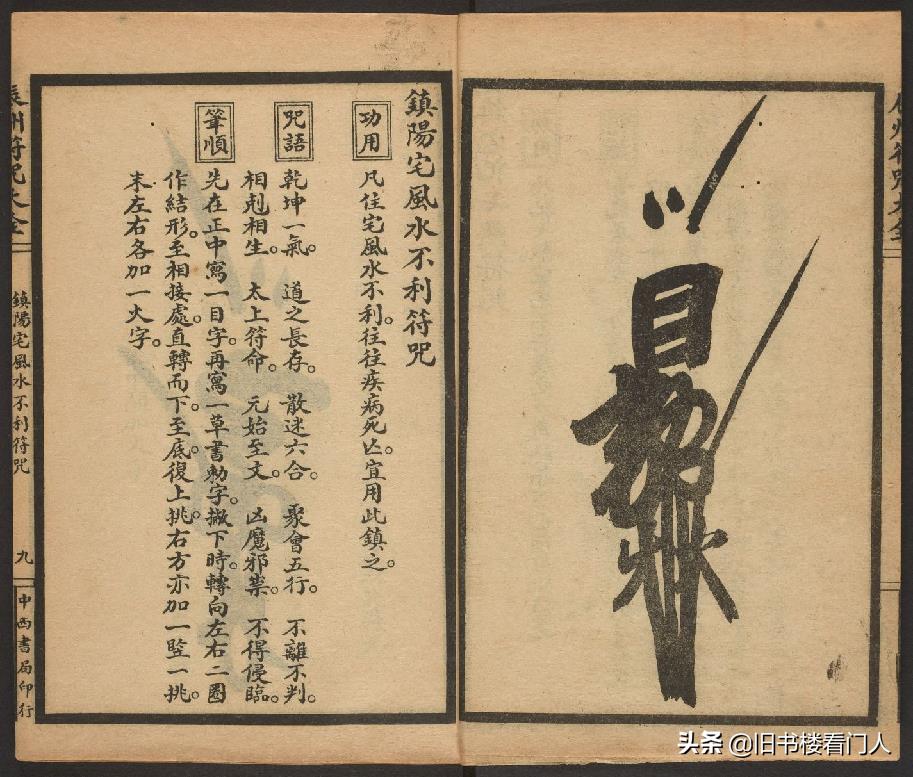 鎮陽宅風水不利符咒
功用
凡住宅風水不利。往往疾病死亡。宜用此鎮之。
咒語
乾坤一氣。道之長存。散迷六合。聚會五行。不離不判。
相剋相生。太上符命。元始至文。凶魔邪祟。不得侵臨。
筆順
先在正中寫一目字。再寫一草書勅字。撇下時。轉向左右二圈
作結形。至相接處。直轉而下。至底。復上挑。右方亦加一竪一挑。
末左右各加一火字。
辰州符咒大全
鎮陽宅風水不利符咒
九
中西書局印行
目
头条 @旧书楼看门人